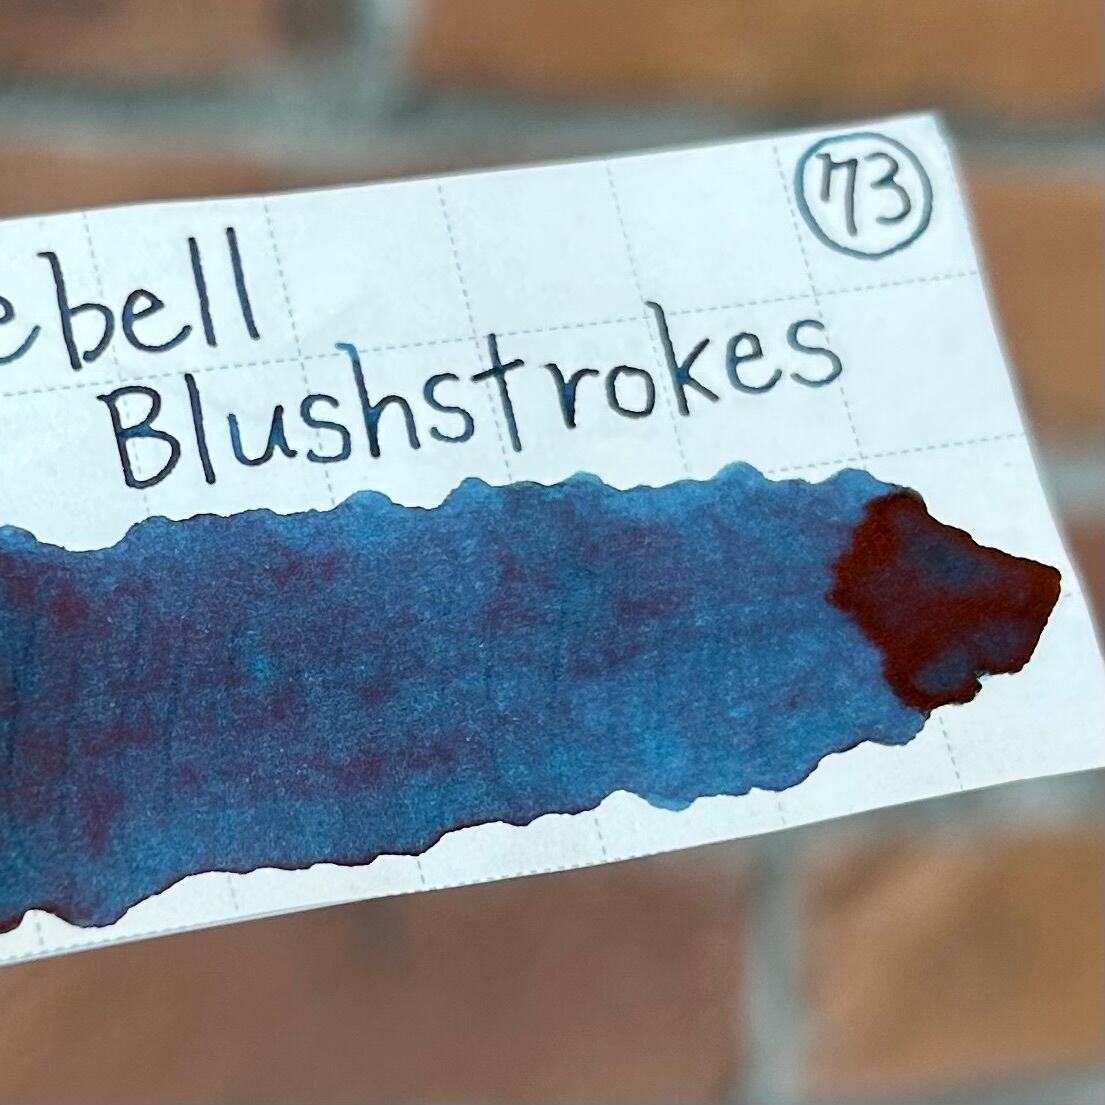 73
ebell
Blushstrokes